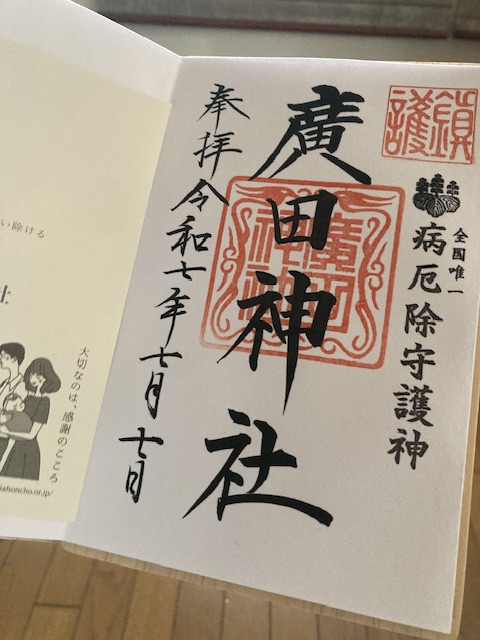 鎮護
全國唯一
病厄除守護神
廣田神社
廣田神社
奉拝令和七年七月七日
い除ける
社
大切なのは、感謝のこころ
iahoncho.or.jp/